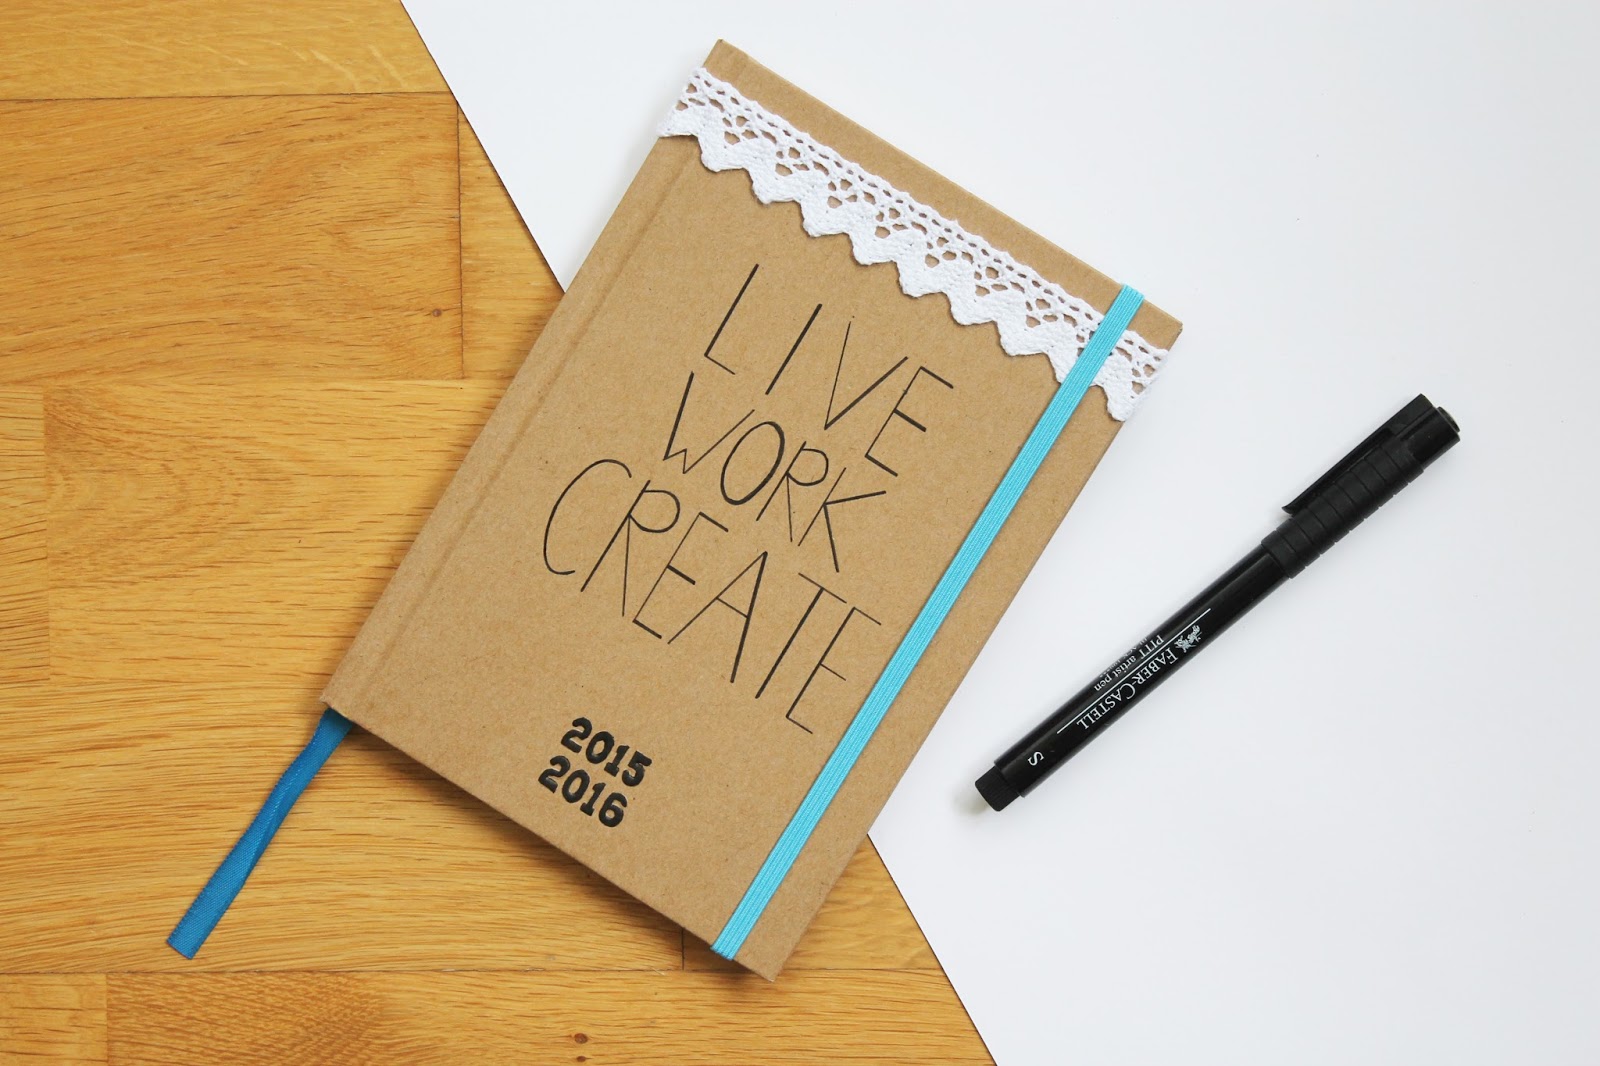 LIVE
WORK
CREATE
2015
2016
FABER-CASTELL
PITT artist pen
S